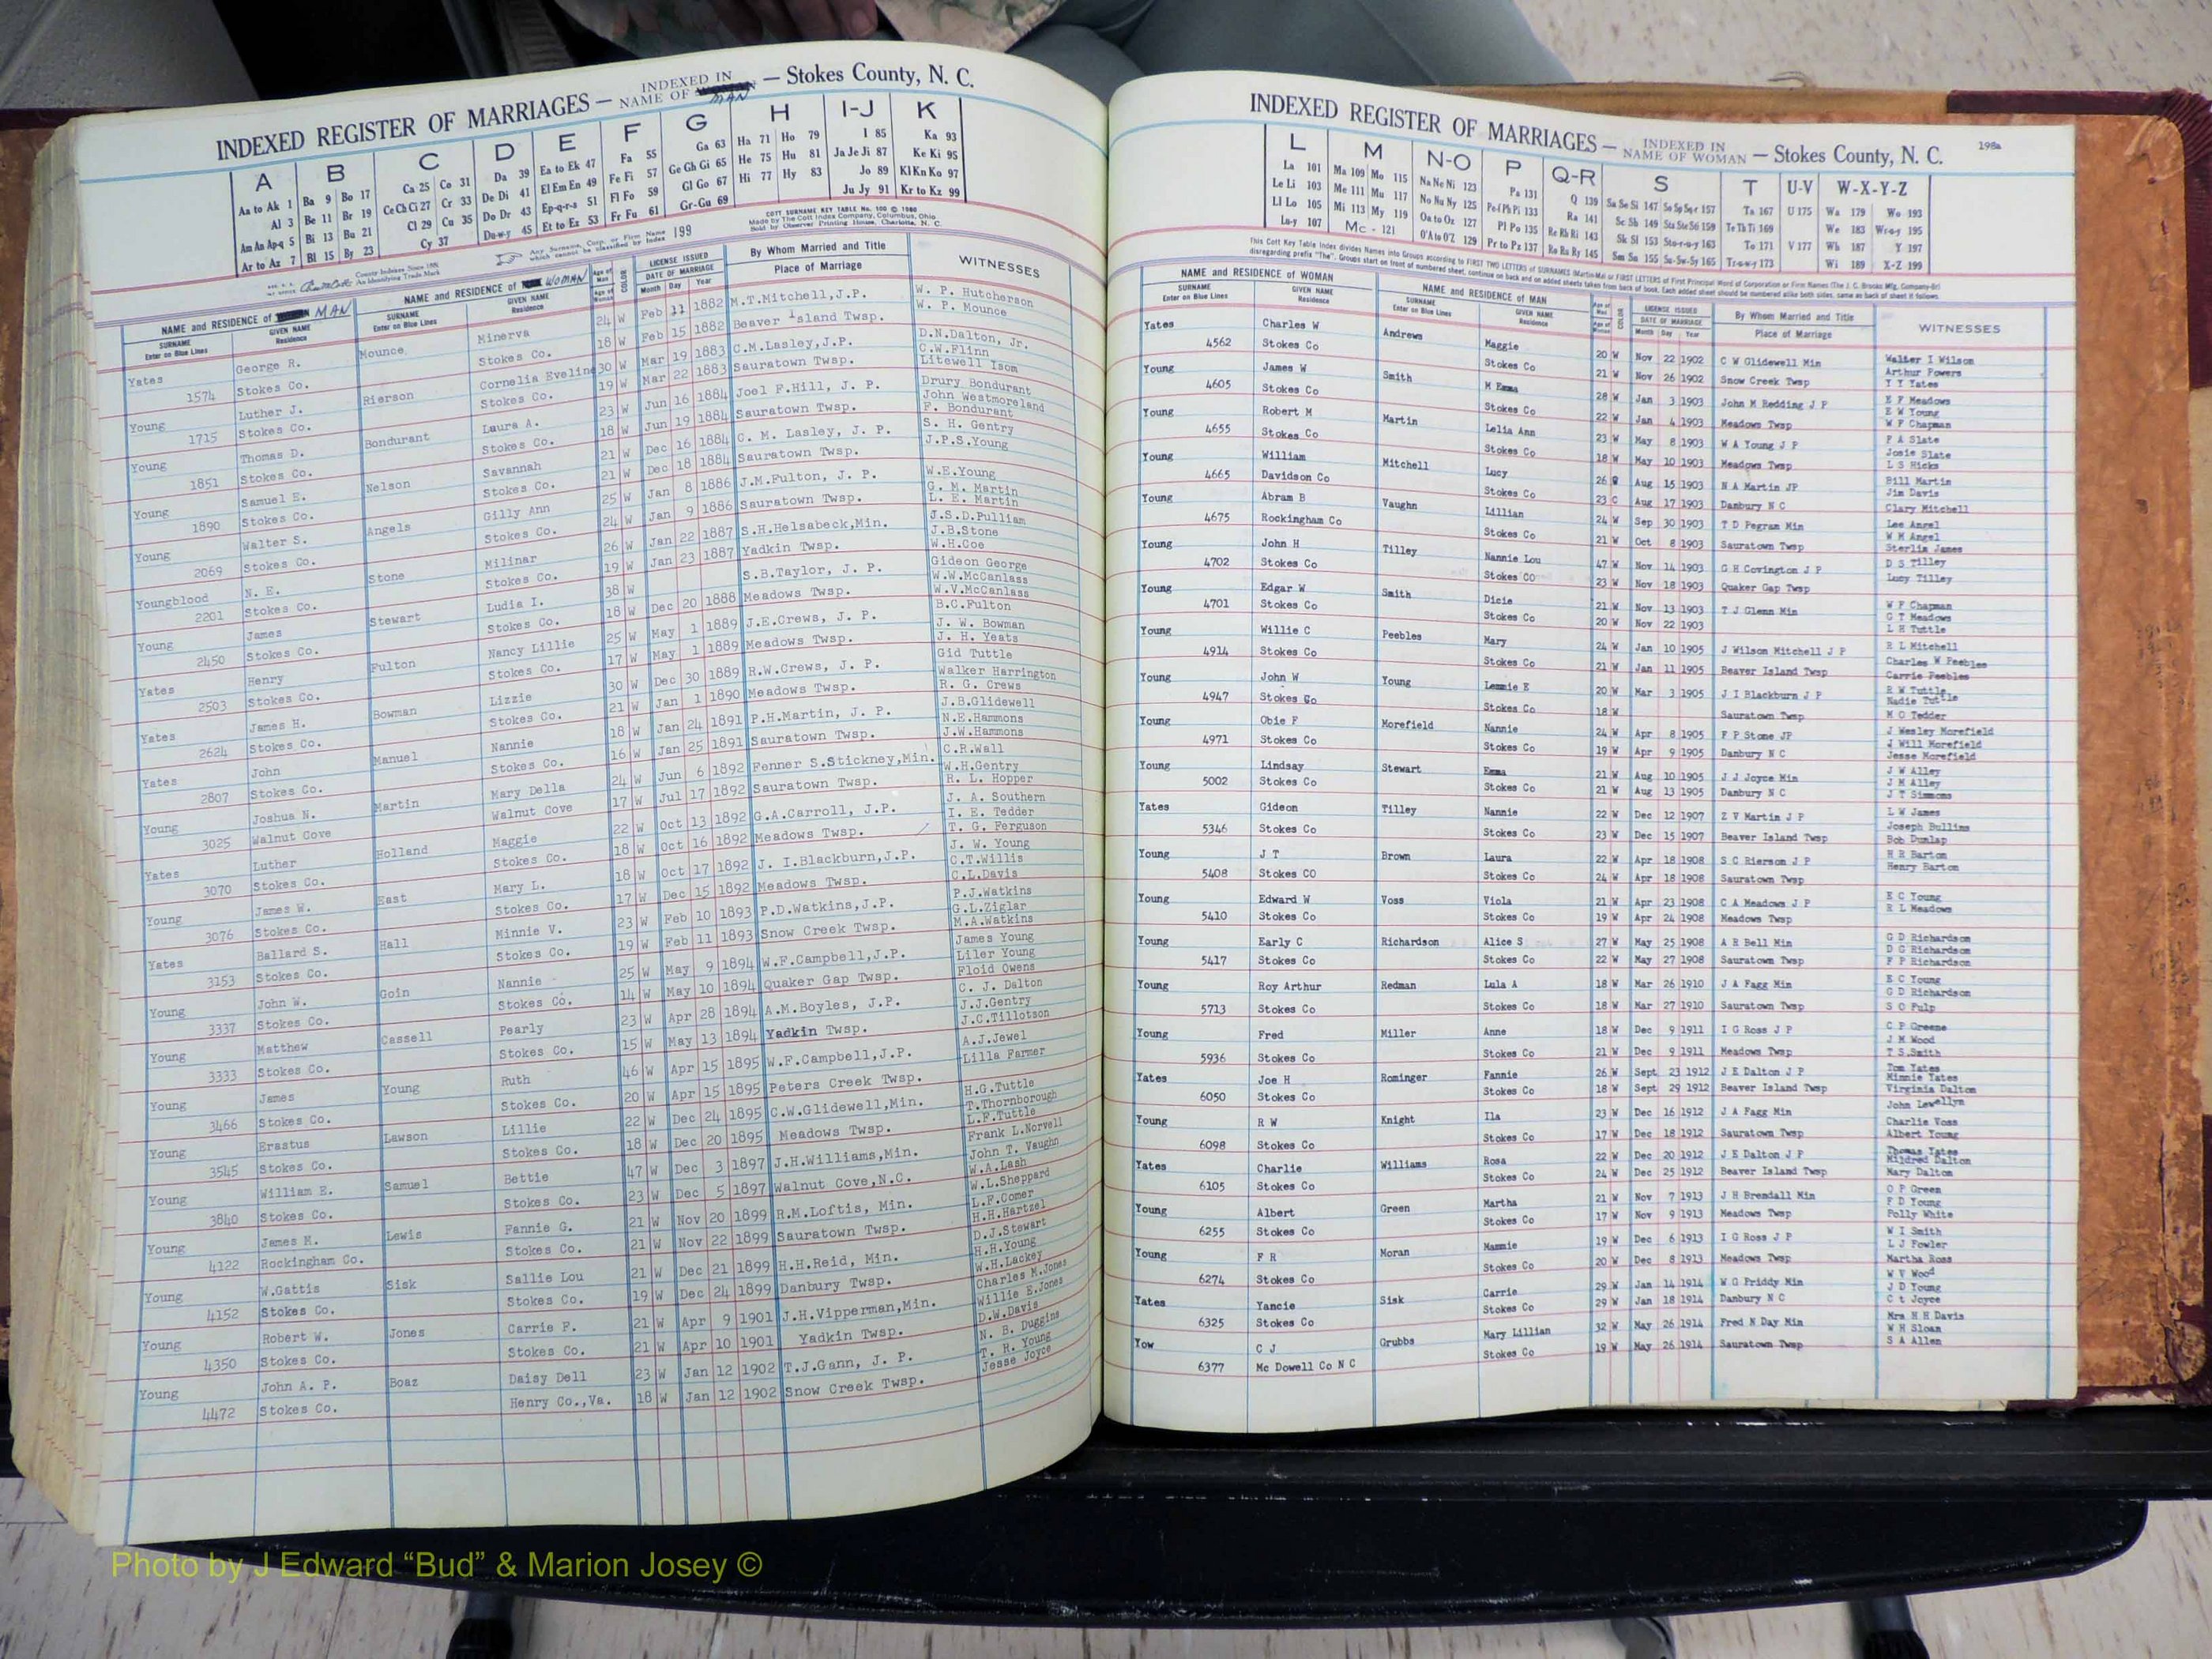 INDEXED REGISTER OF MARRIAGES — INDEXED IN NAME OF WOMAN MAN — Stokes County, N. C.
A B C D E F G H I-J K
Aa to Ak 1 Ba 9 Bo 17 Ca 25 Co 31 Da 39 Ea to Ek 47 Fa 55 Ga 63 Ha 71 Ho 79 I 85 Ka 93
Al 3 Be 11 Br 19 Ce Ch Ci 27 Cr 33 De Di 41 El Em En 49 Fe Fi 57 Ge Gh Gi 65 He 75 Hu 81 Ja Je Ji 87 Ke Ki 95
Am An Ap-q 5 Bi 13 Bu 21 Cl 29 Cu 35 Do Dr 43 Ep-q-r-s 51 Fl Fo 59 Gl Go 67 Hi 77 Hy 83 Jo 89 Kl Kn Ko 97
Ar to Az 7 Bl 15 By 23 Cy 37 Du-w-y 45 Et to Ez 53 Fr Fu 61 Gr-Gu 69 Ju Jy 91 Kr to Kz 99
Any Surname, Corp. or Firm Name which cannot be classified by Index 199
COTT SURNAME KEY TABLE No. 100 © 1980
Made by The Cott Index Company, Columbus, Ohio
Sold by Observer Printing House, Charlotte, N. C.
County Indexes Since 1888
An Identifying Trade Mark
NAME and RESIDENCE of MAN
NAME and RESIDENCE of WOMAN
LICENSE ISSUED
DATE OF MARRIAGE
Month Day Year
By Whom Married and Title
Place of Marriage
WITNESSES
SURNAME Enter on Blue Lines GIVEN NAME Residence SURNAME Enter on Blue Lines GIVEN NAME Residence Age of Man Age of Woman COLOR
Yates George R. Mounce Minerva 24 W Feb 11 1882 M.T.Mitchell,J.P. W. P. Hutcherson
1574 Stokes Co. Stokes Co. 18 W Feb 15 1882 Beaver Island Twsp. W. P. Mounce
Young Luther J. Rierson Cornelia Eveline 30 W Mar 19 1883 C.M.Lasley,J.P. D.N.Dalton, Jr. C.W.Flinn
1715 Stokes Co. Stokes Co. 19 W Mar 22 1883 Sauratown Twsp. Litewell Isom
Young Thomas D. Bondurant Laura A. 23 W Jun 16 1884 Joel F.Hill, J. P. Drury Bondurant John Westmoreland
1851 Stokes Co. Stokes Co. 18 W Jun 19 1884 Sauratown Twsp. F. Bondurant
Young Samuel E. Nelson Savannah 21 W Dec 16 1884 C. M. Lasley, J. P. S. H. Gentry
1890 Stokes Co. Stokes Co. 21 W Dec 18 1884 Sauratown Twsp. J.P.S.Young
Young Walter S. Angels Gilly Ann 25 W Jan 8 1886 J.M.Fulton, J. P. W.E.Young G. M. Martin
2069 Stokes Co. Stokes Co. 24 W Jan 9 1886 Sauratown Twsp. L. E. Martin
Youngblood N. E. Stone Milinar 26 W Jan 22 1887 S.H.Helsabeck,Min. J.S.D.Pulliam J.B.Stone
2201 Stokes Co. Stokes Co. 19 W Jan 23 1887 Yadkin Twsp. W.H.Coe
Young James Stewart Ludia I. 38 W S.B.Taylor, J. P. Gideon George W.W.McCanlass
2450 Stokes Co. Stokes Co. 18 W Dec 20 1888 Meadows Twsp. W.V.McCanlass
Yates Henry Fulton Nancy Lillie 25 W May 1 1889 J.E.Crews, J. P. B.C.Fulton J. W. Bowman
2503 Stokes Co. Stokes Co. 17 W May 1 1889 Meadows Twsp. J. H. Yeats
Yates James H. Bowman Lizzie 30 W Dec 30 1889 R.W.Crews, J. P. Gid Tuttle Walker Harrington
2624 Stokes Co. Stokes Co. 21 W Jan 1 1890 Meadows Twsp. R. G. Crews
Yates John Manuel Nannie 18 W Jan 24 1891 P.H.Martin, J. P. J.B.Glidewell N.E.Hammons
2807 Stokes Co. Stokes Co. 16 W Jan 25 1891 Sauratown Twsp. J.W.Hammons
Young Joshua N. Martin Mary Della 24 W Jun 6 1892 Fenner S.Stickney,Min. C.R.Wall W.H.Gentry
3025 Walnut Cove Walnut Cove 17 W Jul 17 1892 Sauratown Twsp. R. L. Hopper
Yates Luther Holland Maggie 22 W Oct 13 1892 G.A.Carroll, J.P. J. A. Southern I. E. Tedder
3070 Stokes Co. Stokes Co. 18 W Oct 16 1892 Meadows Twsp. T. G. Ferguson
Young James W. East Mary L. 18 W Oct 17 1892 J. I.Blackburn,J.P. J. W. Young C.T.Willis
3076 Stokes Co. Stokes Co. 17 W Dec 15 1892 Meadows Twsp. C.L.Davis
Yates Ballard S. Hall Minnie V. 23 W Feb 10 1893 P.D.Watkins,J.P. P.J.Watkins G.L.Ziglar
3153 Stokes Co. Stokes Co. 19 W Feb 11 1893 Snow Creek Twsp. M.A.Watkins
Young John W. Goin Nannie 25 W May 9 1894 W.F.Campbell,J.P. James Young Liler Young
3337 Stokes Co. Stokes Co. 14 W May 10 1894 Quaker Gap Twsp. Floid Owens
Young Matthew Cassell Pearly 23 W Apr 28 1894 A.M.Boyles, J.P. C. J. Dalton J.J.Gentry
3333 Stokes Co. Stokes Co. 15 W May 13 1894 Yadkin Twsp. J.C.Tillotson
Young James Young Ruth 46 W Apr 15 1895 W.F.Campbell,J.P. A.J.Jewel
3466 Stokes Co. Stokes Co. 20 W Apr 15 1895 Peters Creek Twsp. Lilla Farmer
Young Erastus Lawson Lillie 22 W Dec 24 1895 C.W.Glidewell,Min. H.G.Tuttle T.Thornborough
3545 Stokes Co. Stokes Co. 18 W Dec 20 1895 Meadows Twsp. L.F.Tuttle
Young William E. Samuel Bettie 47 W Dec 3 1897 J.H.Williams,Min. Frank L.Norvell John T. Vaughn
3840 Stokes Co. Stokes Co. 23 W Dec 5 1897 Walnut Cove,N.C. W.A.Lash
Young James M. Lewis Fannie G. 21 W Nov 20 1899 R.M.Loftis, Min. W.L.Sheppard L.F.Comer
4122 Rockingham Co. Stokes Co. 21 W Nov 22 1899 Sauratown Twsp. H.H.Hartzel
Young W.Gattis Sisk Sallie Lou 21 W Dec 21 1899 H.H.Reid, Min. D.J.Stewart H.H.Young
4152 Stokes Co. Stokes Co. 19 W Dec 24 1899 Danbury Twsp. W.H.Lackey
Young Robert W. Jones Carrie F. 21 W Apr 9 1901 J.H.Vipperman,Min. Charles M.Jones Willie E.Jones
4350 Stokes Co. Stokes Co. 21 W Apr 10 1901 Yadkin Twsp. D.W.Davis
Young John A. P. Boaz Daisy Dell 23 W Jan 12 1902 T.J.Gann, J. P. N. B. Duggins T. R. Young
4472 Stokes Co. Henry Co.,Va. 18 W Jan 12 1902 Snow Creek Twsp. Jesse Joyce
INDEXED REGISTER OF MARRIAGES — INDEXED IN NAME OF WOMAN — Stokes County, N. C. 198a
L M N-O P Q-R S T U-V W-X-Y-Z
La 101 Ma 109 Mo 115 Na Ne Ni 123 Pa 131 Q 139 Sa Se Si 147 So Sp Sq-r 157 Ta 167 U 175 Wa 179 Wo 193
Le Li 103 Me 111 Mu 117 No Nu Ny 125 Pe-f Ph Pi 133 Ra 141 Sc Sh 149 Sta Ste Sti 159 Te Th Ti 169 We 183 Wr-u-y 195
Ll Lo 105 Mi 113 My 119 Oa to Oz 127 Pl Po 135 Re Rh Ri 143 Sk Sl 153 Sto-r-u-y 163 To 171 V 177 Wh 187 Y 197
Lu-y 107 Mc - 121 O'A to O'Z 129 Pr to Pz 137 Ro Ru Ry 145 Sm Sn 155 Su-Sw-Sy 165 Tr-u-w-y 173 Wi 189 X-Z 199
This Cott Key Table Index divides Names into Groups according to FIRST TWO LETTERS of SURNAMES (Martin-Ma) or FIRST LETTERS of First Principal Word of Corporation or Firm Names (The J. C. Brooks Mfg. Company-Br)
disregarding prefix "The". Groups start on front of numbered sheet, continue on back and on added sheets taken from back of book. Each added sheet should be numbered alike both sides, same as back of sheet it follows.
NAME and RESIDENCE OF WOMAN
NAME and RESIDENCE OF MAN
LICENSE ISSUED
DATE OF MARRIAGE
Month Day Year
By Whom Married and Title
Place of Marriage
WITNESSES
SURNAME Enter on Blue Lines GIVEN NAME Residence SURNAME Enter on Blue Lines GIVEN NAME Residence Age of Man Age of Woman COLOR
Yates Charles W Andrews Maggie 20 W Nov 22 1902 C W Glidewell Min Walter I Wilson Arthur Powers
4562 Stokes Co Stokes Co 21 W Nov 26 1902 Snow Creek Twsp Y Y Yates
Young James W Smith M Emma 28 W Jan 3 1903 John M Redding J P E F Meadows E W Young
4605 Stokes Co Stokes Co 22 W Jan 4 1903 Meadows Twsp W F Chapman
Young Robert M Martin Lelia Ann 23 W May 8 1903 W A Young J P F A Slate Josie Slate
4655 Stokes Co Stokes Co 18 W May 10 1903 Meadows Twsp L S Hicks
Young William Mitchell Lucy 26 Aug 15 1903 N A Martin JP Bill Martin Jim Davis
4665 Davidson Co Stokes Co 23 C Aug 17 1903 Danbury N C Clary Mitchell
Young Abram B Vaughn Lillian 24 W Sep 30 1903 T D Pegram Min Lee Angel W M Angel
4675 Rockingham Co Stokes Co 21 W Oct 8 1903 Sauratown Twsp Sterlin James
Young John H Tilley Nannie Lou 47 W Nov 14 1903 G H Covington J P D S Tilley
4702 Stokes Co Stokes CO 23 W Nov 18 1903 Quaker Gap Twsp Lucy Tilley
Young Edgar W Smith Dicie 21 W Nov 13 1903 T J Glenn Min W F Chapman G T Meadows
4701 Stokes Co Stokes Co 20 W Nov 22 1903 L H Tuttle
Young Willie C Peebles Mary 24 W Jan 10 1905 J Wilson Mitchell J P R L Mitchell Charles W Peebles
4914 Stokes Co Stokes Co 21 W Jan 11 1905 Beaver Island Twsp Carrie Peebles
Young John W Young Lennie E 20 W Mar 3 1905 J I Blackburn J P R W Tuttle Nadie Tuttle
4947 Stokes Co Stokes Co 18 W Sauratown Twsp M O Tedder
Young Obie F Morefield Nannie 24 W Apr 8 1905 F P Stone JP J Wesley Morefield J Will Morefield
4971 Stokes Co Stokes Co 19 W Apr 9 1905 Danbury N C Jesse Morefield
Young Lindsay Stewart Emma 21 W Aug 10 1905 J J Joyce Min J W Alley J M Alley
5002 Stokes Co Stokes Co 21 W Aug 13 1905 Danbury N C J T Simmons
Yates Gideon Tilley Nannie 22 W Dec 12 1907 Z V Martin J P L W James Joseph Bullins
5346 Stokes Co Stokes Co 23 W Dec 15 1907 Beaver Island Twsp Bob Dunlap
Young J T Brown Laura 22 W Apr 18 1908 S C Rierson J P H R Barton Henry Barton
5408 Stokes CO Stokes Co 24 W Apr 18 1908 Sauratown Twsp
Young Edward W Voss Viola 21 W Apr 23 1908 C A Meadows J P E C Young R L Meadows
5410 Stokes Co Stokes Co 19 W Apr 24 1908 Meadows Twsp
Young Early C Richardson Alice S 27 W May 25 1908 A R Bell Min G D Richardson D G Richardson
5417 Stokes Co Stokes Co 22 W May 27 1908 Sauratown Twsp F P Richardson
Young Roy Arthur Redman Lula A 18 W Mar 26 1910 J A Fagg Min E C Young G D Richardson
5713 Stokes Co Stokes Co 18 W Mar 27 1910 Sauratown Twsp S O Pulp
Young Fred Miller Anne 18 W Dec 9 1911 I G Ross J P C P Greene J M Wood
5936 Stokes Co Stokes Co 21 W Dec 9 1911 Meadows Twsp T S.Smith
Yates Joe H Rominger Fannie 26 W Sept 23 1912 J E Dalton J P Tom Yates Minnie Yates
6050 Stokes Co Stokes Co 18 W Sept 29 1912 Beaver Island Twsp Virginia Dalton
Young R W Knight Ila 23 W Dec 16 1912 J A Fagg Min John Lewellyn Charlie Voss
6098 Stokes Co Stokes Co 17 W Dec 18 1912 Sauratown Twsp Albert Young
Yates Charlie Williams Rosa 22 W Dec 20 1912 J E Dalton J P Thomas Yates Mildred Dalton
6105 Stokes Co Stokes Co 24 W Dec 25 1912 Beaver Island Twsp Mary Dalton
Young Albert Green Martha 21 W Nov 7 1913 J H Brendall Min O P Green F D Young
6255 Stokes Co Stokes Co 17 W Nov 9 1913 Meadows Twsp Polly White
Young F R Moran Mammie 19 W Dec 6 1913 I G Ross J P W I Smith L J Fowler
6274 Stokes Co Stokes Co 20 W Dec 8 1913 Meadows Twsp Martha Ross
Yates Yancie Sisk Carrie 29 W Jan 14 1914 W G Priddy Min W V Wood J D Young
6325 Stokes Co Stokes Co 29 W Jan 18 1914 Danbury N C C t Joyce
Yow C J Grubbs Mary Lillian 32 W May 26 1914 Fred N Day Min Mrs H H Davis W H Sloan
6377 Mc Dowell Co N C Stokes Co 19 W May 26 1914 Sauratown Twsp S A Allen
Photo by J Edward “Bud” & Marion Josey ©